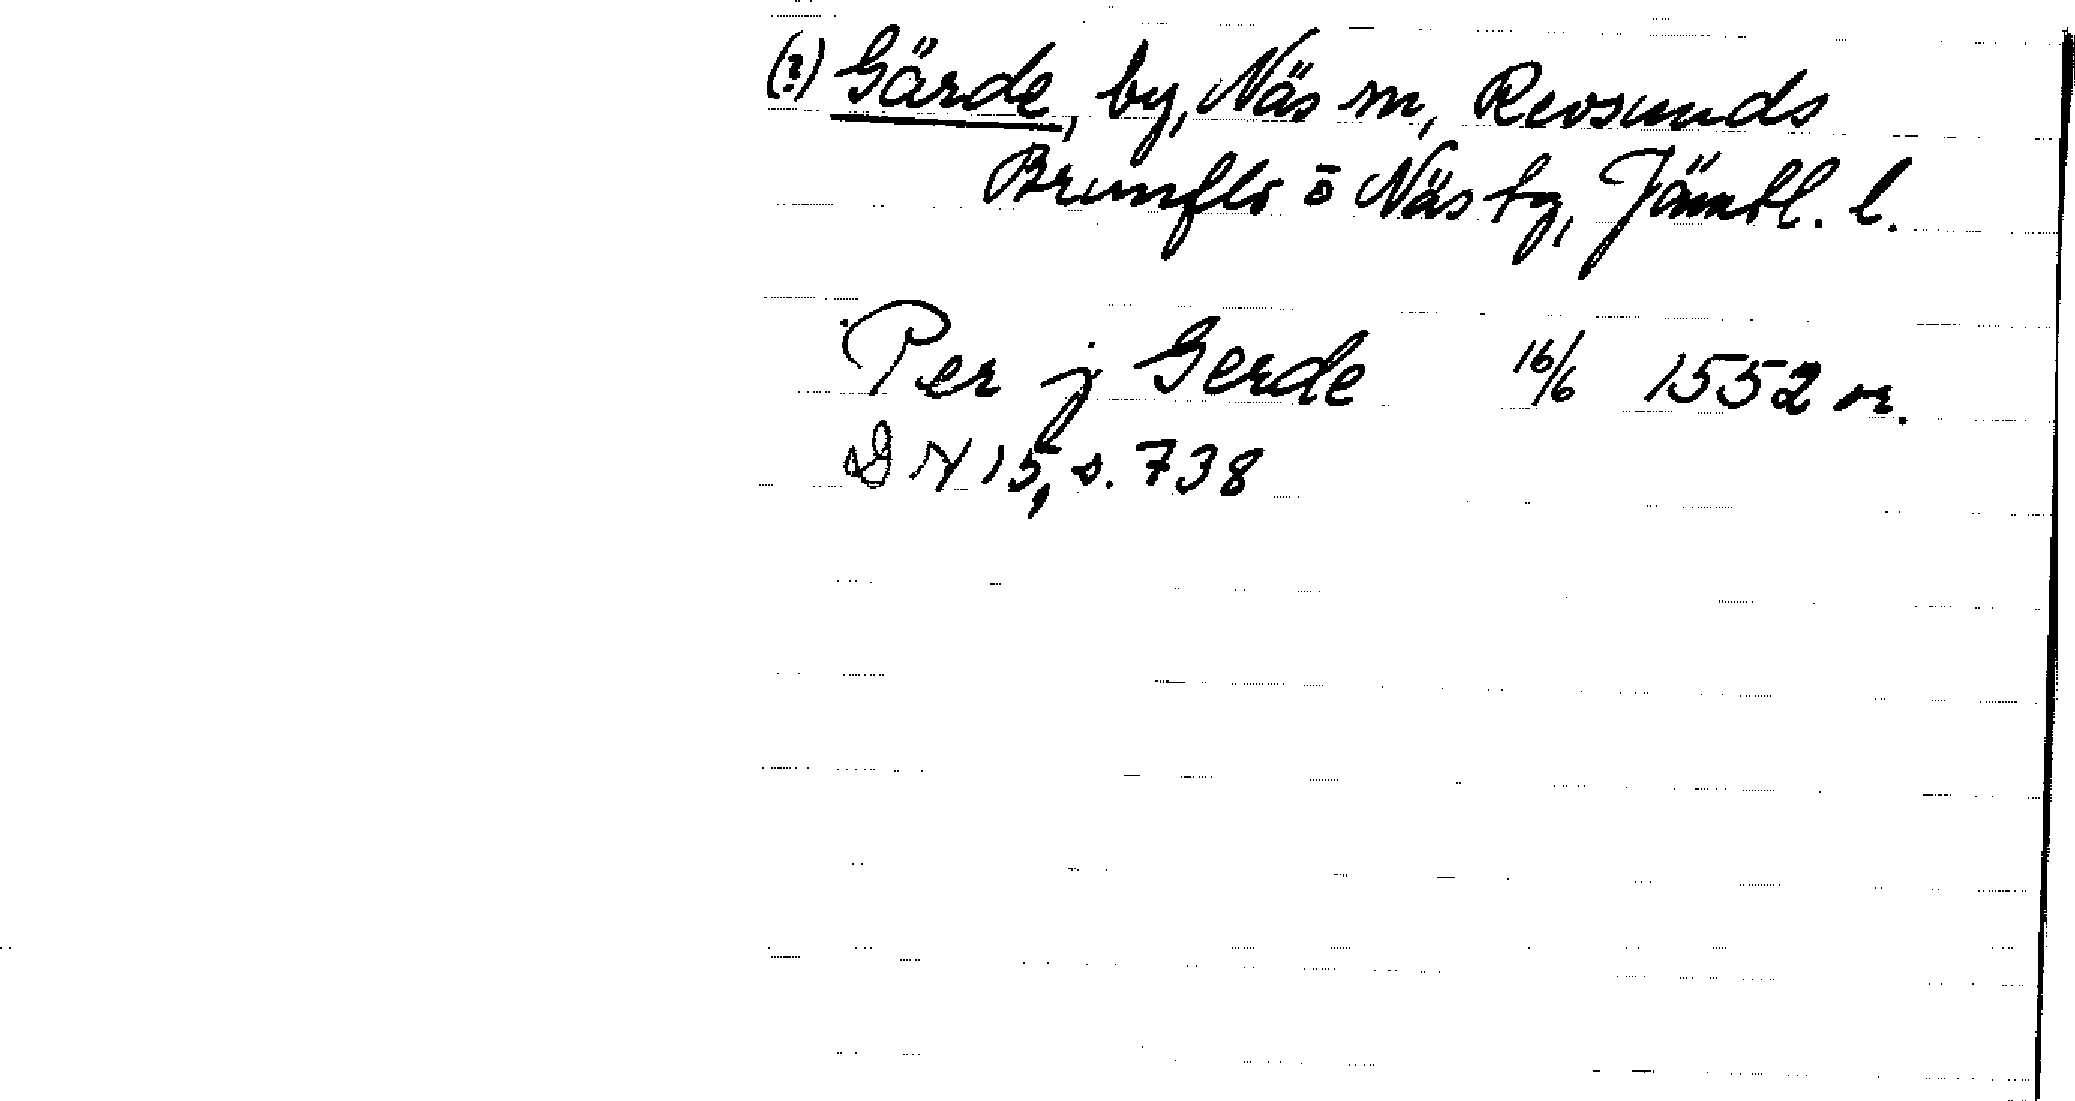 (?) Gärde, by, Näs sn, Revsunds
Brunflo o Näs tg, Jämtl. l.
Per j Gerde 16/6 1552 or.
DN 15, s. 738